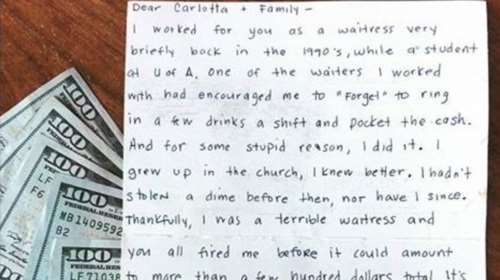 Dear Carlotta + Family -
I worked for you as a waitress very
briefly back in the 1990's, while a student
at U of A. One of the waiters I worked
with had encouraged me to "Forget" to ring
in a few drinks a shift and pocket the cash.
And for some stupid reason, I did it. I
grew up in the church, I knew better. I hadn't
stolen a dime before then, nor have I since.
Thankfully, I was a terrible waitress and
you all fired me before it could amount
to more than a few hundred dollars total. It's
100
100
100
LF
F6
100
FEDERAL RESERVE
MB1409592
B2
100
FEDERAL RESERVE
LF71038